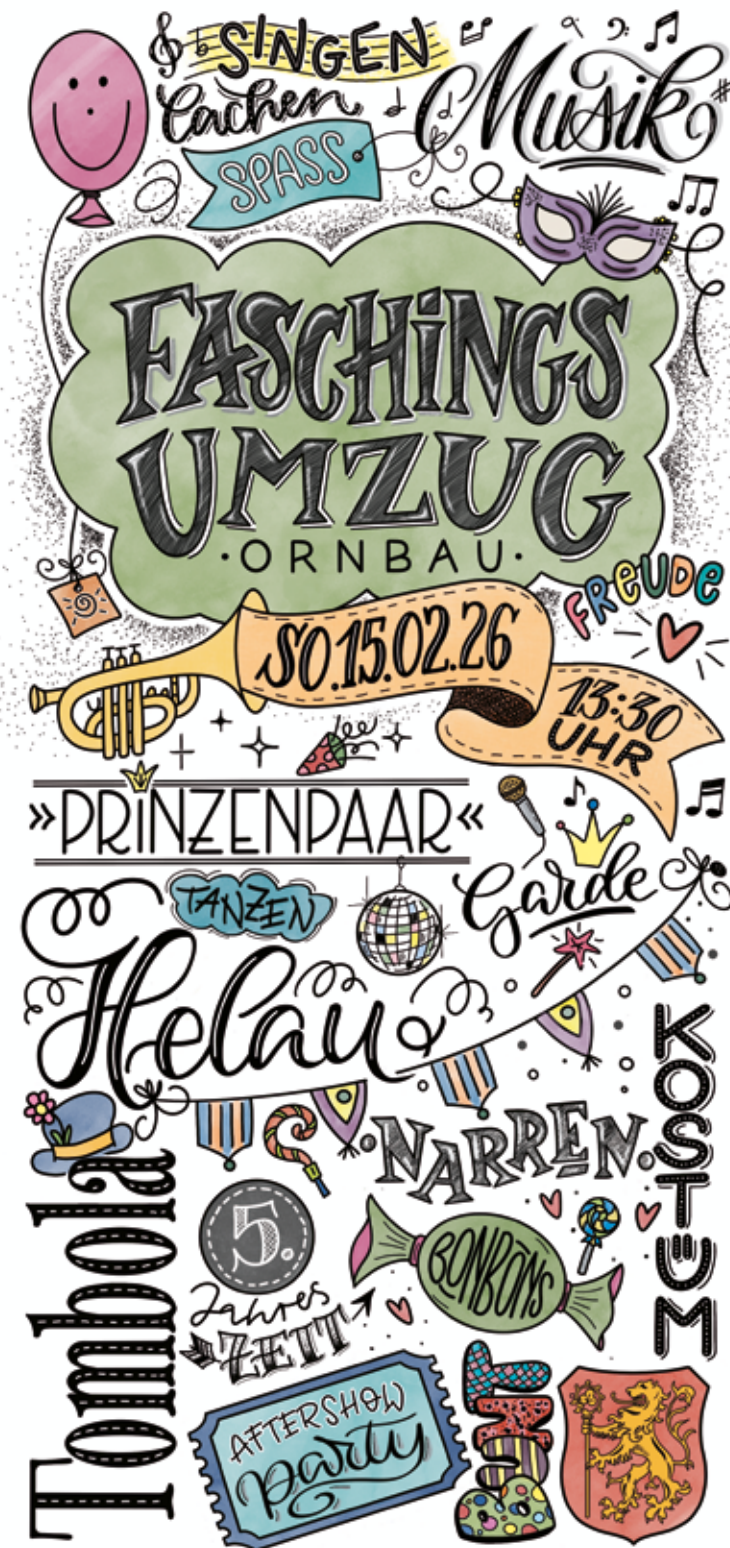 SINGEN
Lachen
Musik
SPASS
FASCHiNGS
UMZUG
·ORNBAU·
FREUDE
SO.15.02.26
13:30
UHR
»PRiNZENPAAR«
TANZEN
Garde
Helau
KOSTÜM
NARREN
Tombola
5.
Jahres
ZEIT
BONBONS
AFTERSHOW
party
BUNT